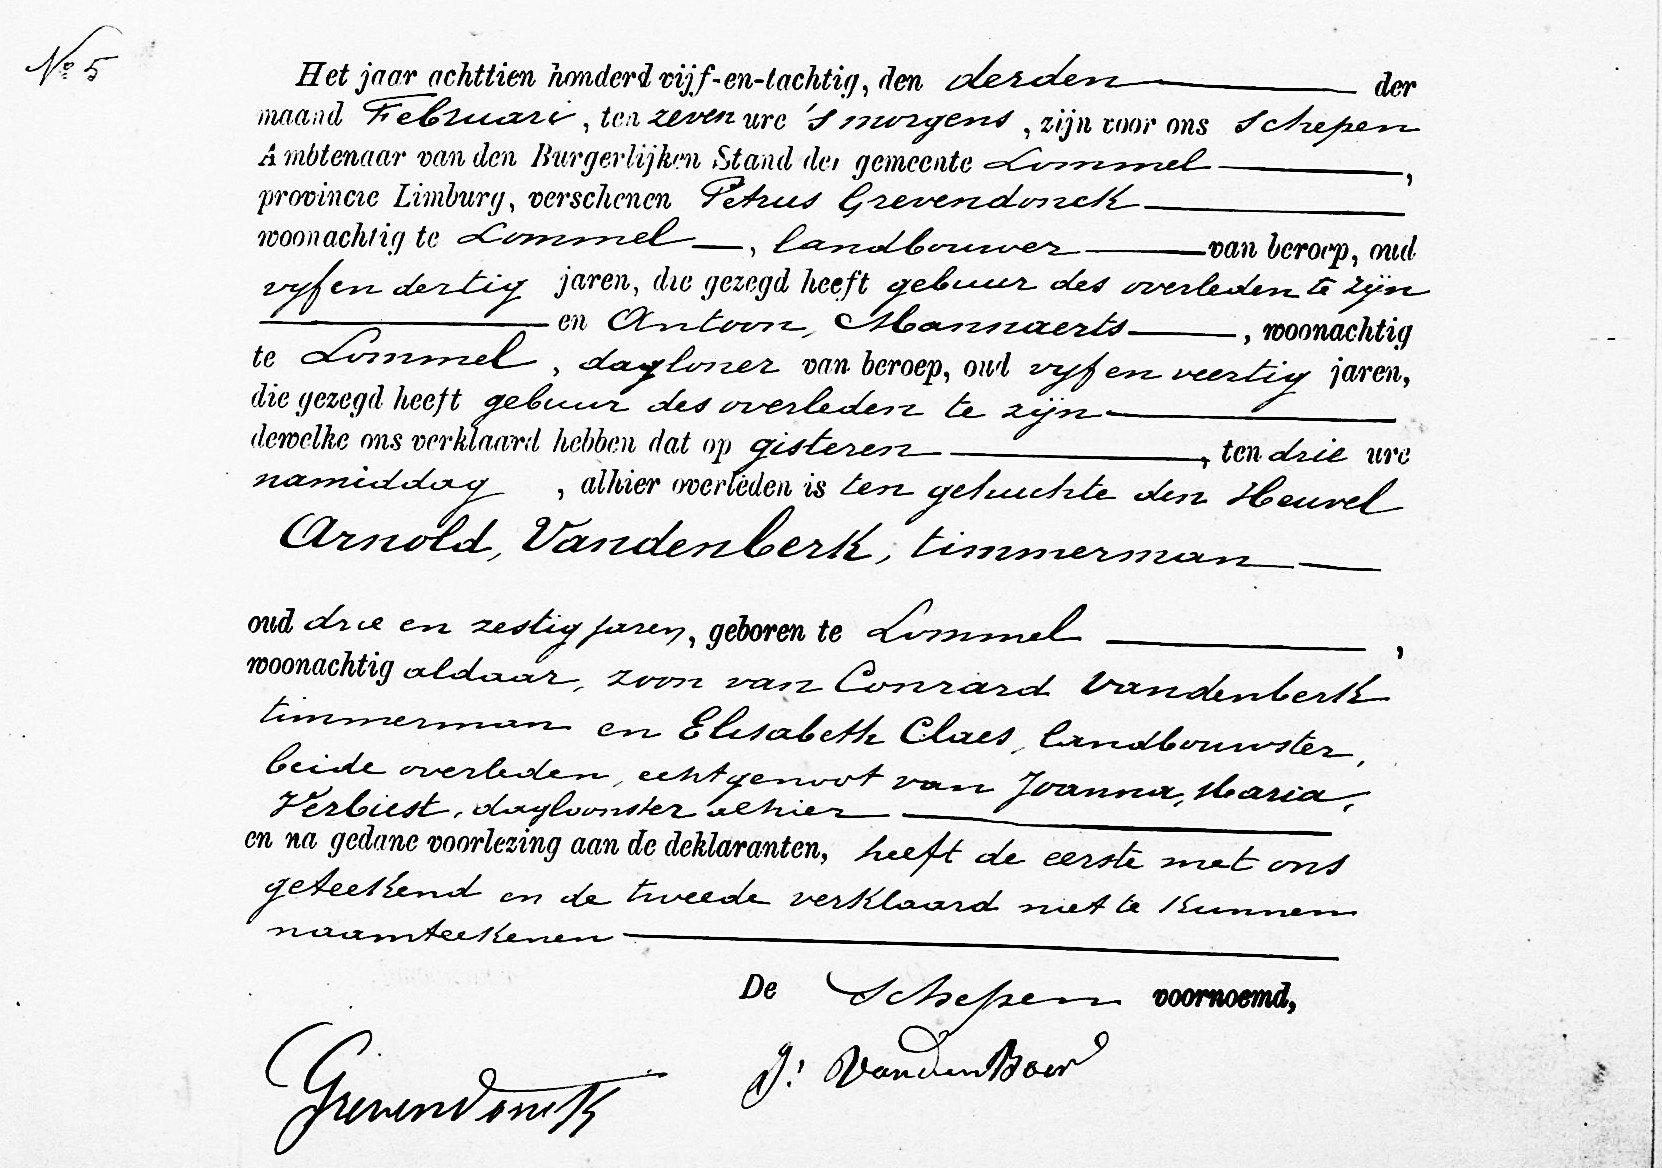 No 5
Het jaar achttien honderd vijf-en-tachtig, den derden der
maand Februari, ten zeven ure 's morgens, zijn voor ons Schepen
Ambtenaar van den Burgerlijken Stand der gemeente Lommel,
provincie Limburg, verschenen Petrus Grevendonck
woonachtig te Lommel, landbouwer van beroep, oud
vyf en dertig jaren, die gezegd heeft gebuur des overleden te zijn
en Antoon, Mannaerts, woonachtig
te Lommel, dagloner van beroep, oud vyf en veertig jaren,
die gezegd heeft gebuur des overleden te zijn
dewelke ons verklaard hebben dat op gisteren, ten drie ure
namiddag, alhier overleden is ten gehuchte den Heuvel
Arnold, Vandenberk, timmerman
oud drie en zestig jaren, geboren te Lommel,
woonachtig aldaar, zoon van Conrard Vandenberk
timmerman en Elisabeth Claes, landbouwster,
beide overleden, echtgenoot van Joanna, Maria,
Verbiest, dagloonster alhier
en na gedane voorlezing aan de deklaranten, heeft de eerste met ons
geteekend en de tweede verklaard niet te kunnen
naamteekenen
De Schepen voornoemd,
Grevendonck
J. Vanden Boer